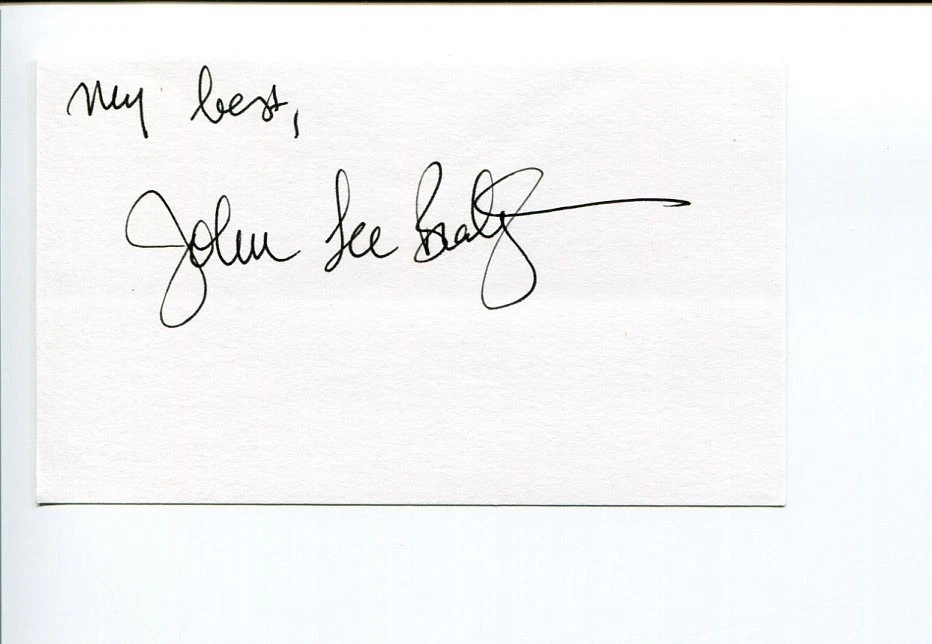 My best,
John Lee Beatty